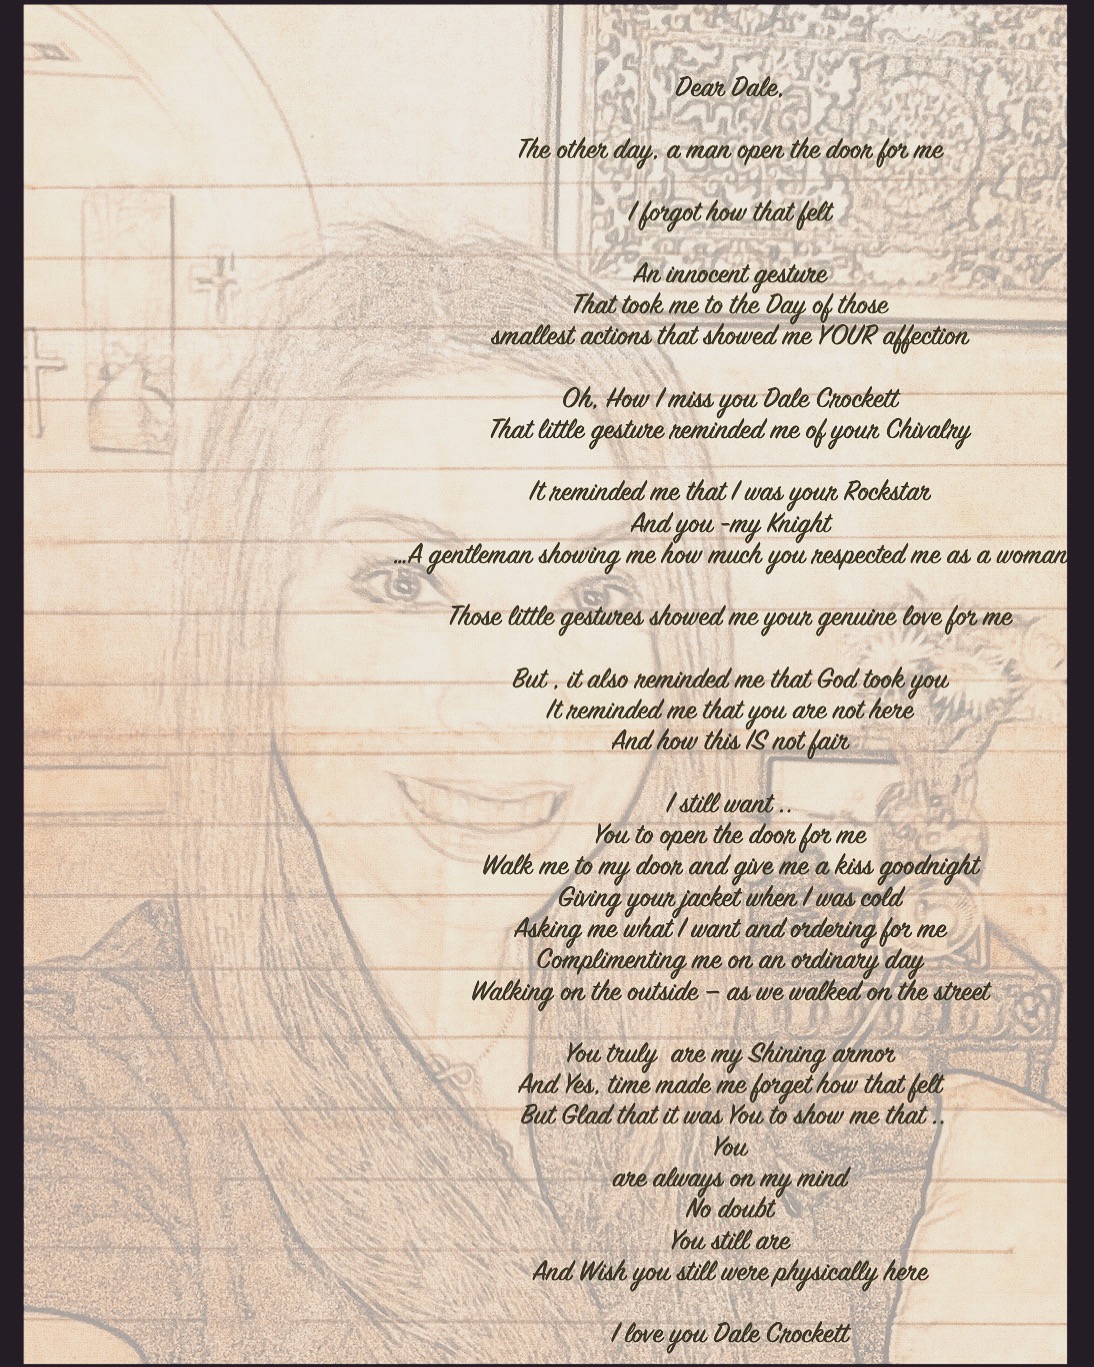 Dear Dale,
The other day, a man open the door for me
I forgot how that felt
An innocent gesture
That took me to the Day of those
smallest actions that showed me YOUR affection
Oh, How I miss you Dale Crockett
That little gesture reminded me of your Chivalry
It reminded me that I was your Rockstar
And you -my Knight
...A gentleman showing me how much you respected me as a woman
Those little gestures showed me your genuine love for me
But , it also reminded me that God took you
It reminded me that you are not here
And how this IS not fair
I still want ..
You to open the door for me
Walk me to my door and give me a kiss goodnight
Giving your jacket when I was cold
Asking me what I want and ordering for me
Complimenting me on an ordinary day
Walking on the outside – as we walked on the street
You truly  are my Shining armor
And Yes, time made me forget how that felt
But Glad that it was You to show me that ..
You
are always on my mind
No doubt
You still are
And Wish you still were physically here
I love you Dale Crockett